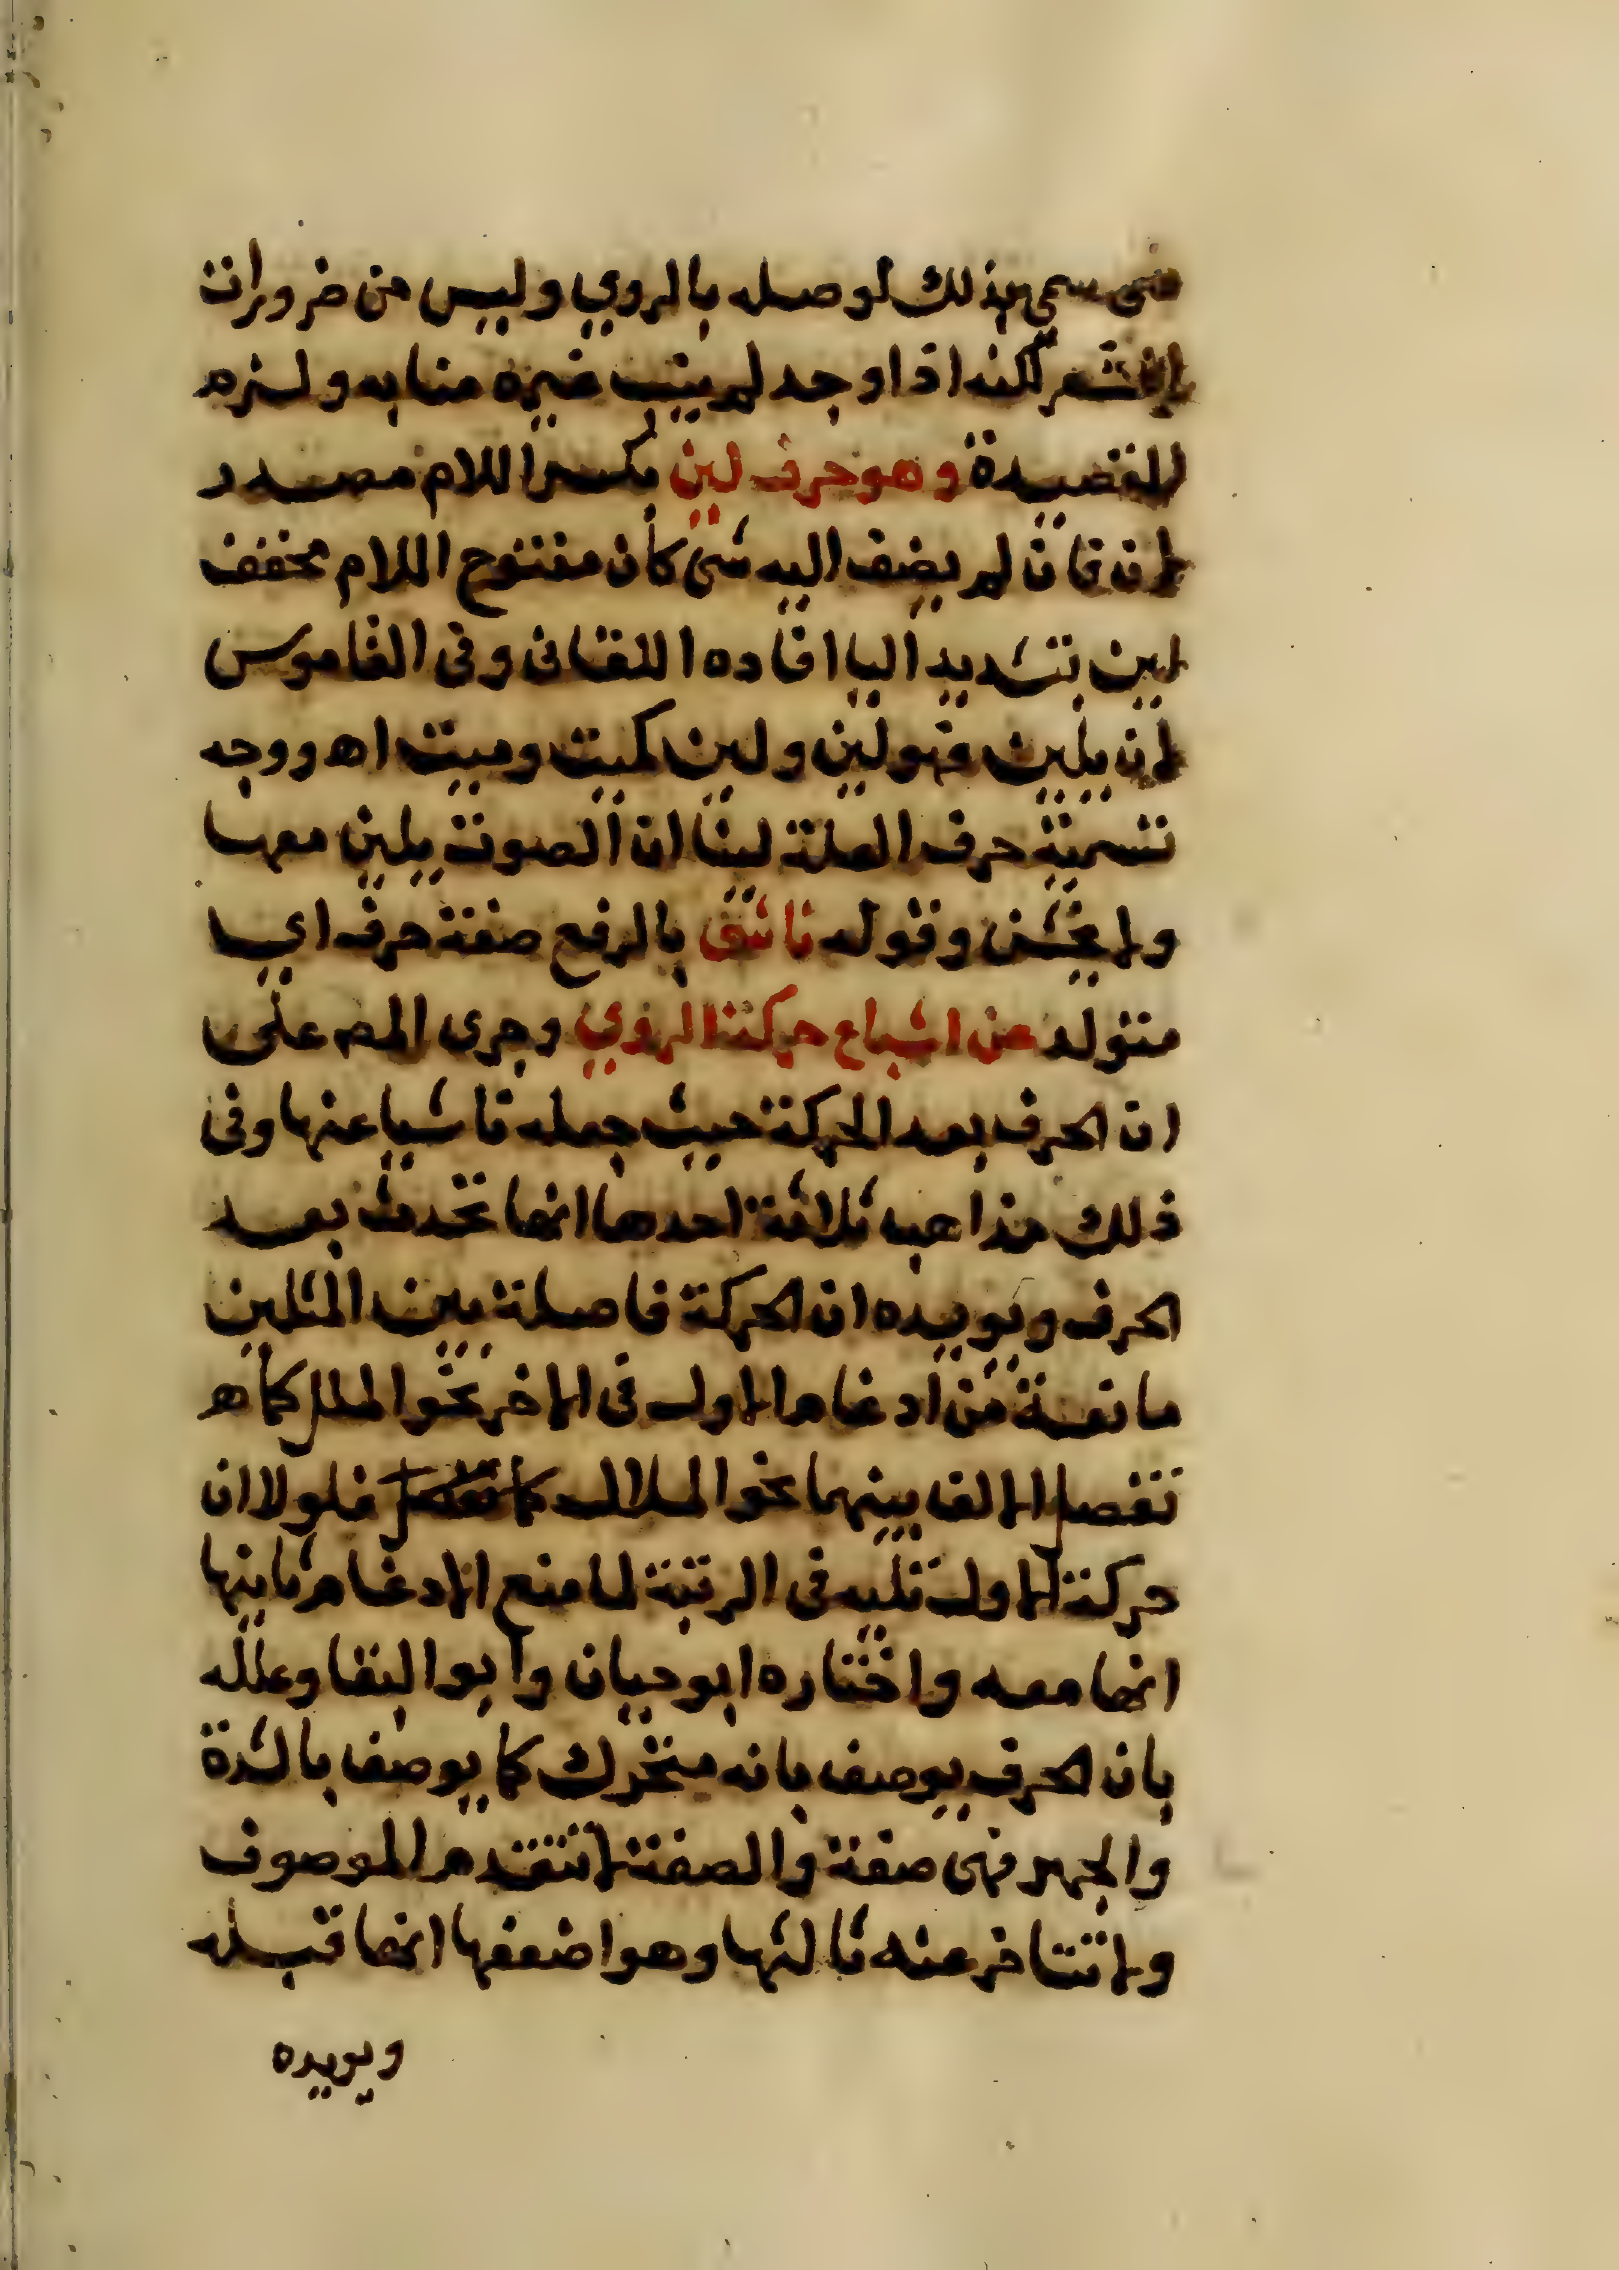 شى سمي بذلك لوصله بالروي وليس من ضرورات
الشعر لكنه اذا وجد لم ينب غيره منابه ولزم
القصيدة وهو حرف لين بكسر اللام مصدر
لان فان لم يضف اليه شى كان مفتوح اللام مخفف
لين بتشديد اليا افاده اللقانى وفى القاموس
لان يلين فهو لين ولين كميت وميت اه ووجه
تسمية حرف العلة لينا ان الصوت يلين معها
ولا يخشن وقوله ناشئ بالرفع صفة حرف اي
متولد عن اشباع حركة الروي وجرى المص على
ان الحرف بعد الحركة حيث جعله ناشيا عنها وفى
ذلك مذاهب ثلاثة احدها انها تحدث بعد
الحرف ويويده ان الحركة فاصلة بين المثلين
مانعة من ادغام الاول فى الاخر نحو الملل كما
تفصل الالف بينهما نحو الملال فلولا ان
حركة الاول تليه فى الرتبة لما منع الادغام ثانيها
انها معه واختاره ابو حيان وابو البقا وعلله
بان الحرف يوصف بانه متحرك كما يوصف بالشدة
والجهر فهى صفة والصفة لا تتقدم الموصوف
ولا تتاخر عنه ثالثها وهو اضعفها انها قبله
ويويده